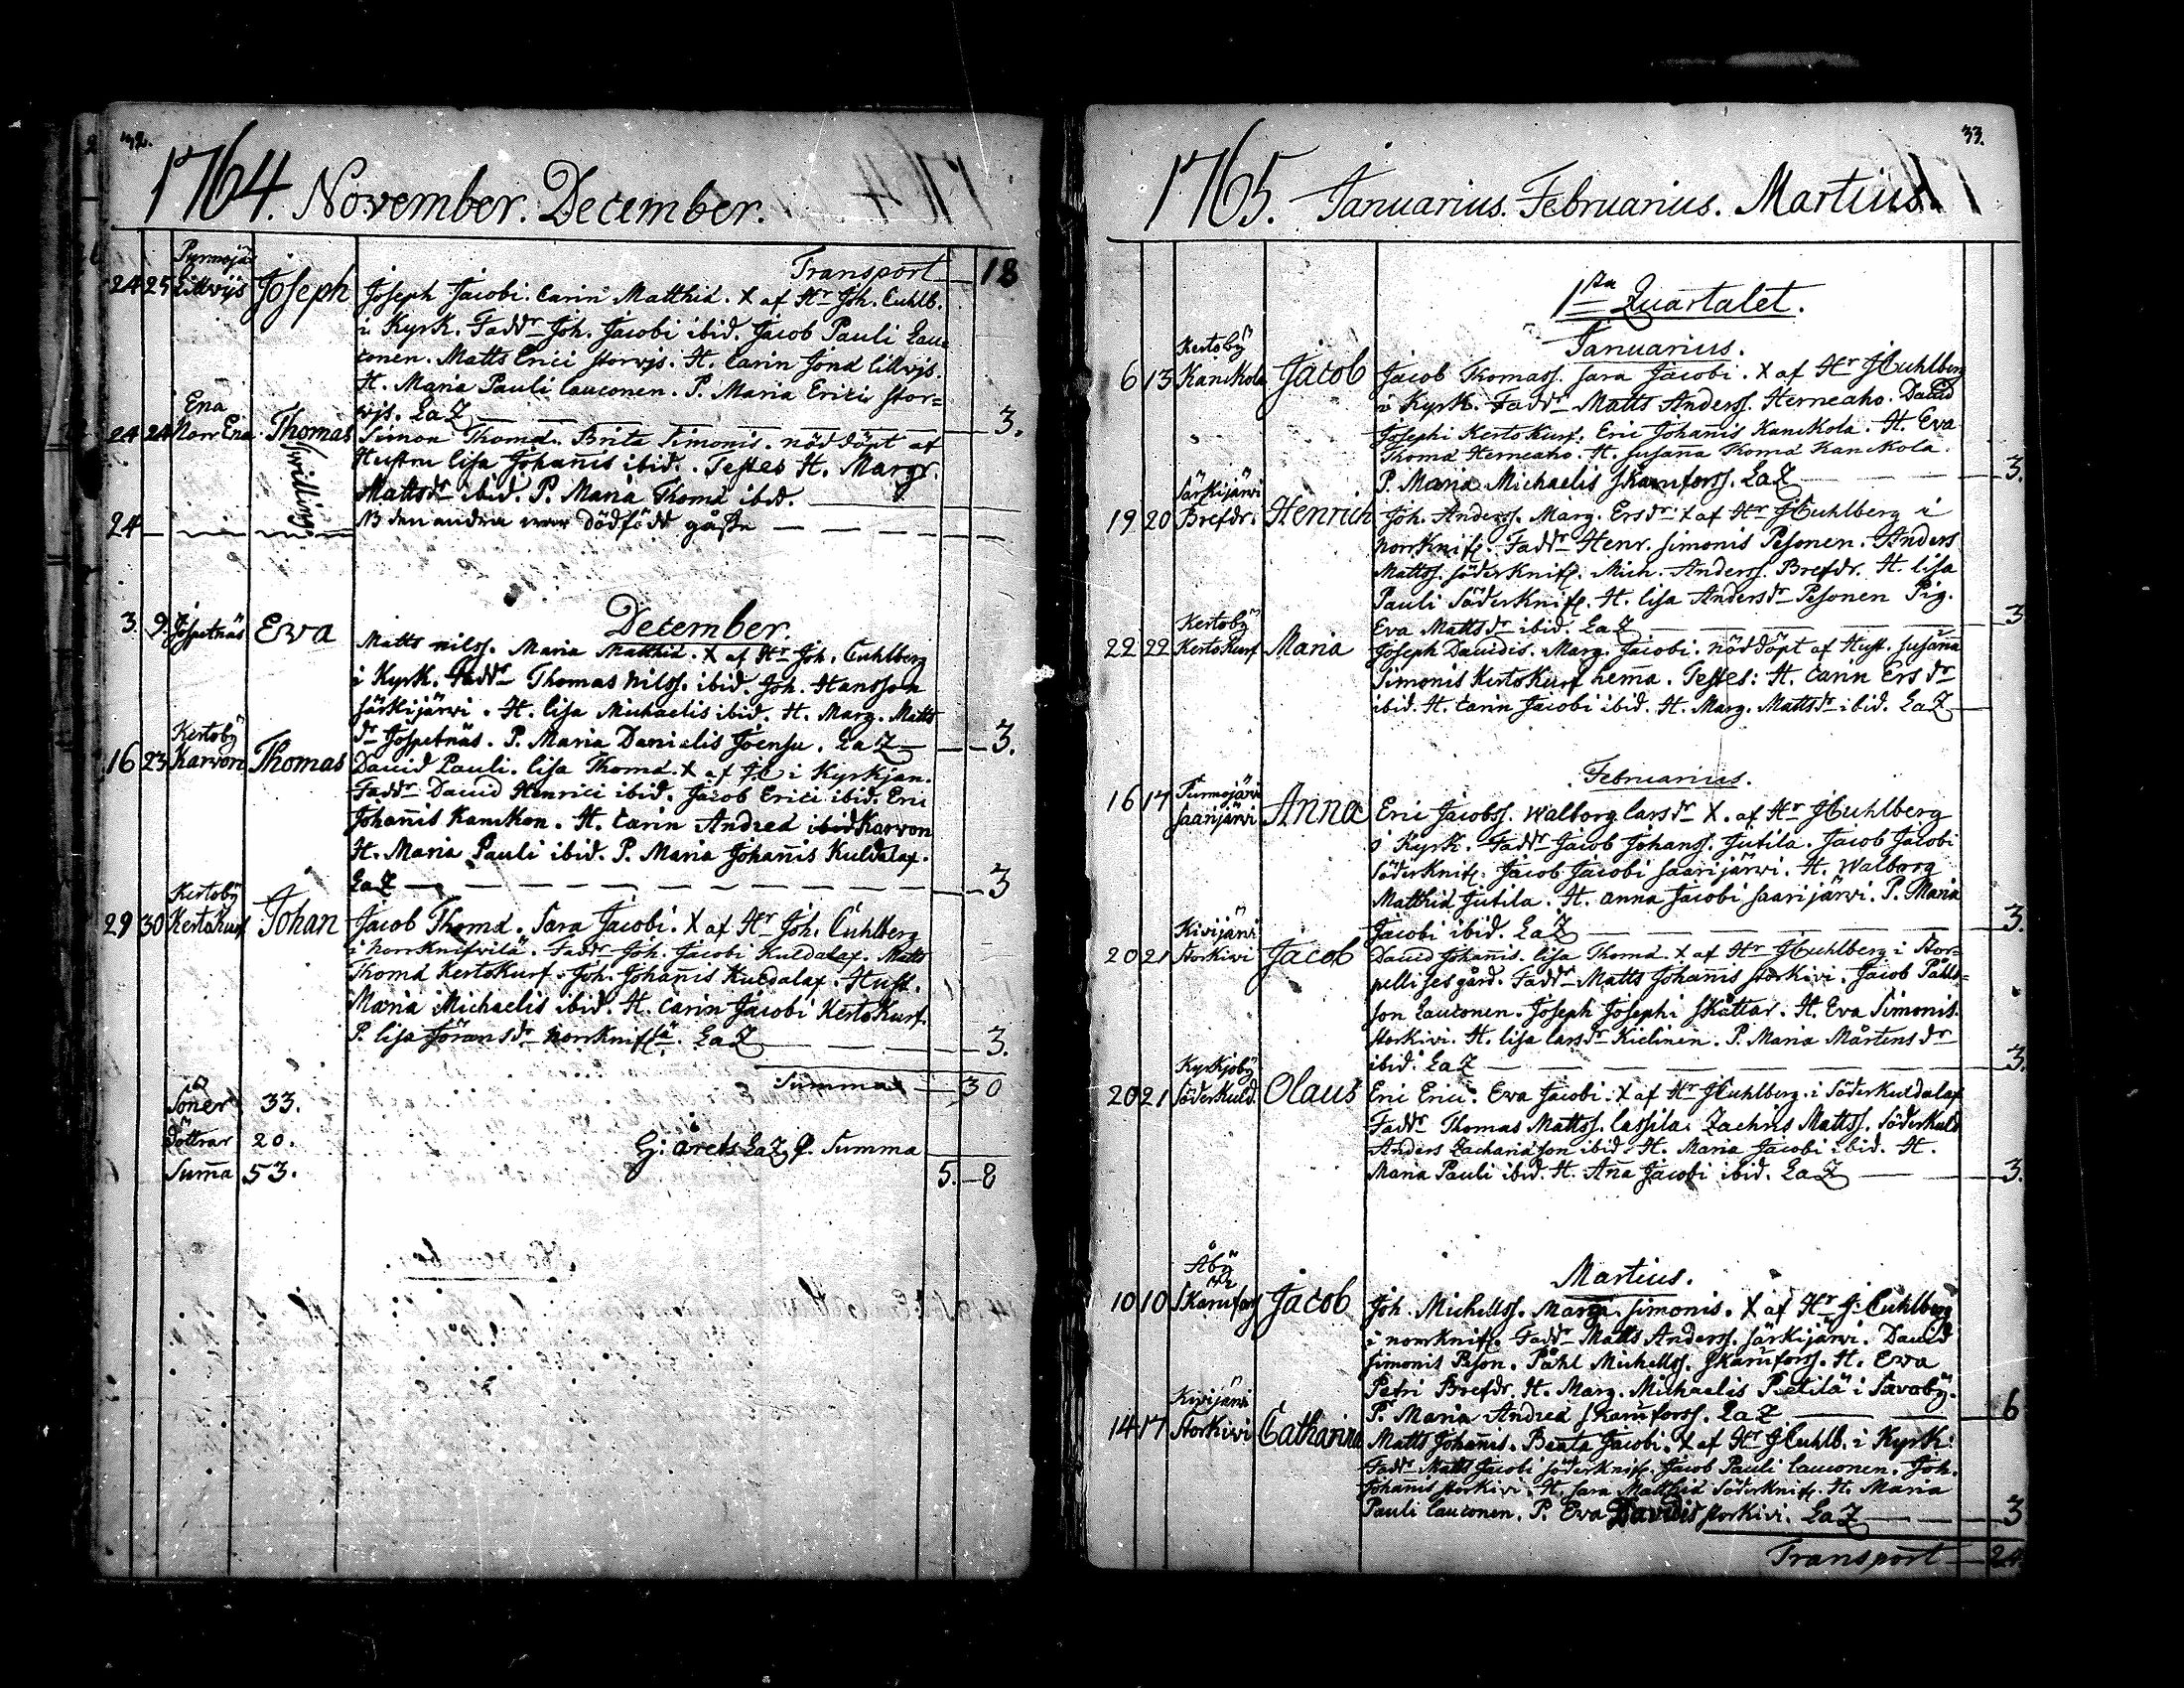 32.
1764. November. December.
Transport 18
Purmojä
24 25 Lillvijs Joseph Joseph Jacobi. Carin Matthiæ. X af Hr Joh. Cuhlb.
i Kyrk. Faddr Joh. Jacobi ibid. Jacob Pauli Lau-
conen. Matts Erici storvjs. H. Carin Jonæ Lillvjs.
H. Maria Pauli Lauconen. P. Maria Erici stor=
vjs. LaZ 3.
Ena
24 24 Norr Ena Thomas Simon Thomæ. Brita Simonis. nöddöpt af
Hustru Lisa Johan̄is ibid. Testes H. Margr.
Mattsdr ibid. P. Maria Thomæ ibid.
Twilling
24 NB den andra war dödfödd gåsse
December.
3. 9. Jöspetnäs Ewa Matts Nilss. Maria Matthiæ. X af Hr Joh. Cuhlberg
i Kyrk. Faddr Thomas Nilss. ibid. Joh. Hansson
särkijärvi. H. Lisa Michaelis ibid. H. Marg. Matts
dr Jöspetnäs. P. Maria Danielis Joensu. LaZ 3.
Kertoby
16 23 Karvon Thomas David Pauli. Lisa Thomæ. X af JC i Kyrkjan.
Faddr David Henrici ibid. Jacob Erici ibid. Eric
Johan̄is Kanckon. H. Carin Andreæ ibid Karvon
H. Maria Pauli ibid. P. Maria Johan̄is Kuldalax.
LaZ 3
Kertoby
29 30 Kertokurf Johan Jacob Thomæ. Sara Jacobi. X af Hr Joh. Cuhlberg
i norrknifvilä. Faddr Joh. Jacobi Kuldalax. Matts
Thomæ Kertokurf. Joh. Johan̄is Kuldalax. Hust.
Maria Michaelis ibid. H. Carin Jacobi Kertokurf.
P. Lisa Jöransdr norrknifsä. LaZ 3.
Summa 30
Söner 33.
Döttrar 20. årets LaZ Summa
Sum̄a 53. 5.–8
33.
1765. Januarius. Februarius. Martius.
1sta Quartalet.
Januarius.
Kertoby
6 13 Kanckola Jacob Jacob Thomass. Sara Jacobi. X af Hr JCuhlberg
i Kyrk. Faddr Matts Anderss. Herneaho. David
Josephi Kertokurf. Eric Johan̄is Kanckola. H. Eva
Thomæ Herneaho. H. Susan̄a Thomæ Kanckola.
P. Maria Michaelis Skarufors. LaZ 3.
Särkijärvi
19 20 Brefdr. Henrich Joh. Anderss. Marg. Ersdr. X af Hr JCuhlberg i
norrknif. Faddr Henr. Simonis Pesonen. Anders
Mattss. Söderknif. Mich. Anderss. Brefdr. H. Lisa
Pauli Söderknif. H. Lisa Andersdr Pesonen Pig.
Eva Mattsdr ibid. LaZ 3
Kertoby
22 22 Kertokurf Maria Joseph Davidis. Marg. Jacobi. nöddöpt af Hust. Susan̄a
Simonis Kertokurf hem̄a. Testes: H. Carin Ersdr
ibid. H. Carin Jacobi ibid. H. Marg. Mattsdr ibid. LaZ
Februarius.
Purmojärvi
16 17 Saarijärvi Anna Eric Jacobss. Walborg Larsdr X. af Hr JCuhlberg
i Kyrk. Faddr Jacob Johanss. Jutila. Jacob Jacobi
Söderknif. Jacob Jacobi Saarijärvi. H. Walborg
Matthiæ Jutila. H. Anna Jacobi Saarijärvi. P. Maria
Jacobi ibid. LaZ 3.
Kivijärvi
20 21 Storkivi Jacob David Johan̄is. Lisa Thomæ. X af Hr JCuhlberg i Stor=
pellises gård. Faddr Matts Johan̄is Storkivi. Jacob Påhls=
son Lauconen. Joseph Josephi Skåttar. H. Eva Simonis
Storkivi. H. Lisa Larsdr Kielinen. P. Maria Mårtensdr
ibid. LaZ 3.
Kyrkjoby
20 21 Söderkuld. Olaus Eric Erici. Eva Jacobi. X af Hr JCuhlberg. i Söderkuldalax
Faddr Thomas Mattss. Lassila. Zachris Mattss. Söderkuld
Anders Zachariæson ibid. H. Maria Jacobi ibid. H.
Maria Pauli ibid. H. An̄a Jacobi ibid. LaZ 3.
Martius.
Åby
10 10 Skarufors Jacob Joh. Michellss. Maria Simonis. X af Hr J. Cuhlberg
i norrknif. Faddr Matts Anderss. Särkijärvi. David
Simonis Peson. Påhl Michellss. Skarufors. H. Eva
Petri Brefdr. H. Marg. Michaelis Pietilä i Savoby.
P. Maria Andreæ Skarufors. LaZ 6
Kivijärvi
14 17 Storkivi Catharina Matts Johan̄is. Beata Jacobi. X af Hr JCuhlb. i Kyrk.
Faddr Matts Jacobi Söderknif. Jacob Pauli Lauconen. Joh.
Johanis Storkivi. H. Sara Matthiæ Söderknif. H. Maria
Pauli Lauconen. P. Eva Davidis Storkivi. LaZ 3
Transport 24